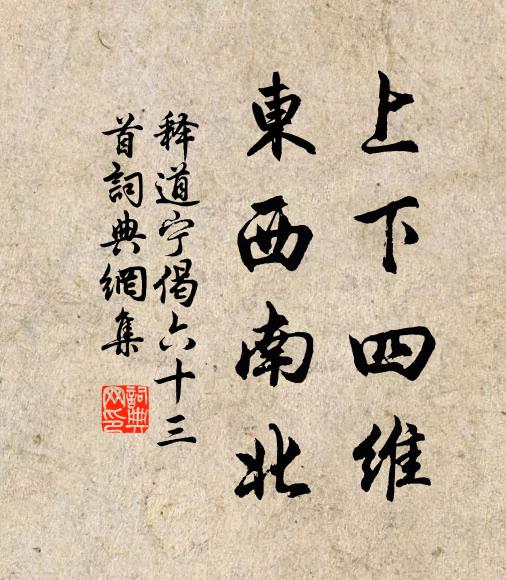 上下四維
東西南北
释道宁偈六十三
首詞典網集
詞典网印